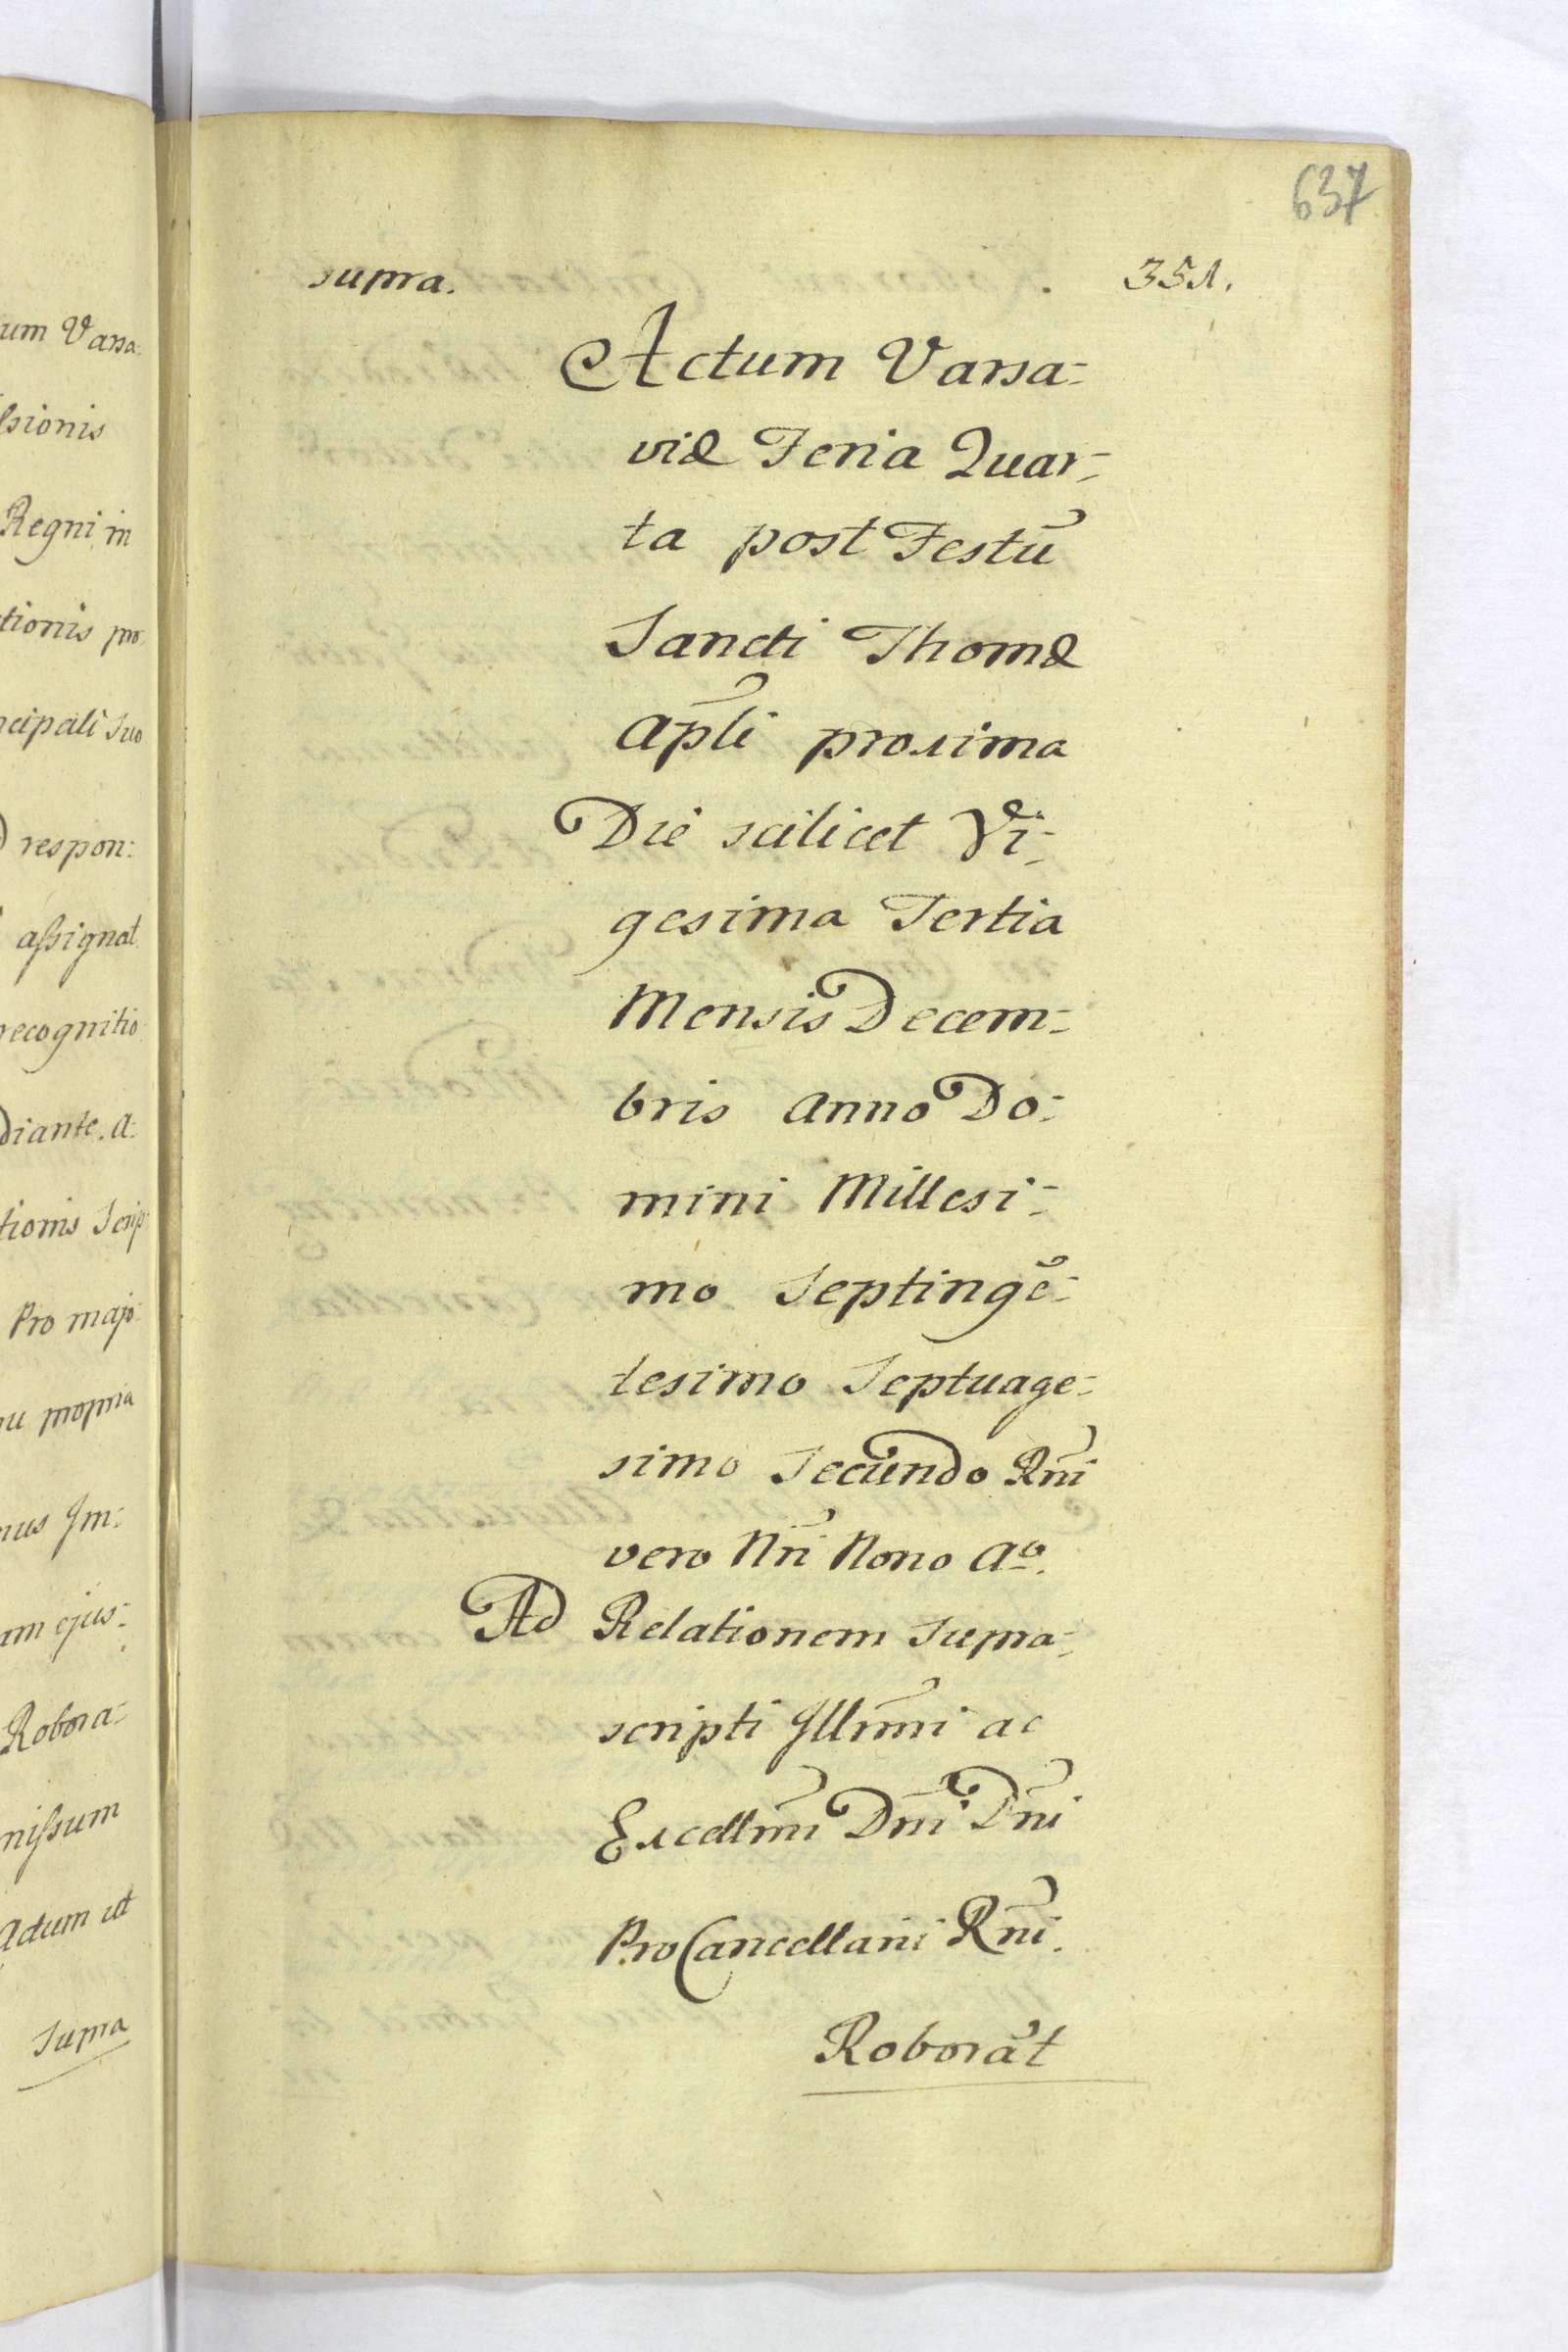 um Varsa:
ssionis
Regni in
tionis pro
ncipali suo
respon:
assignat
recognitio
diante. A:
tionis Scrip
Pro majo:
nu propria
nus Jm:
um ejus:
Robora:
missum
Actum ut
Supra
637
supra. 351.
Actum Varsa:
viæ Feria Quar:
ta post Festū
Sancti Thomæ
Apl̄i proxima
Die scilicet Vi:
gesima Tertia
Mensis Decem:
bris Anno Do:
mini Millesi:
mo Septingē:
tesimo Septuage:
simo Secundo Rn̄i
vero Nr̄i Nono Aº.
Ad Relationem supra:
scripti Jllmi ac
Excellmi Dn̄i Dn̄i
ProCancellarii Rn̄i.
Roborāt